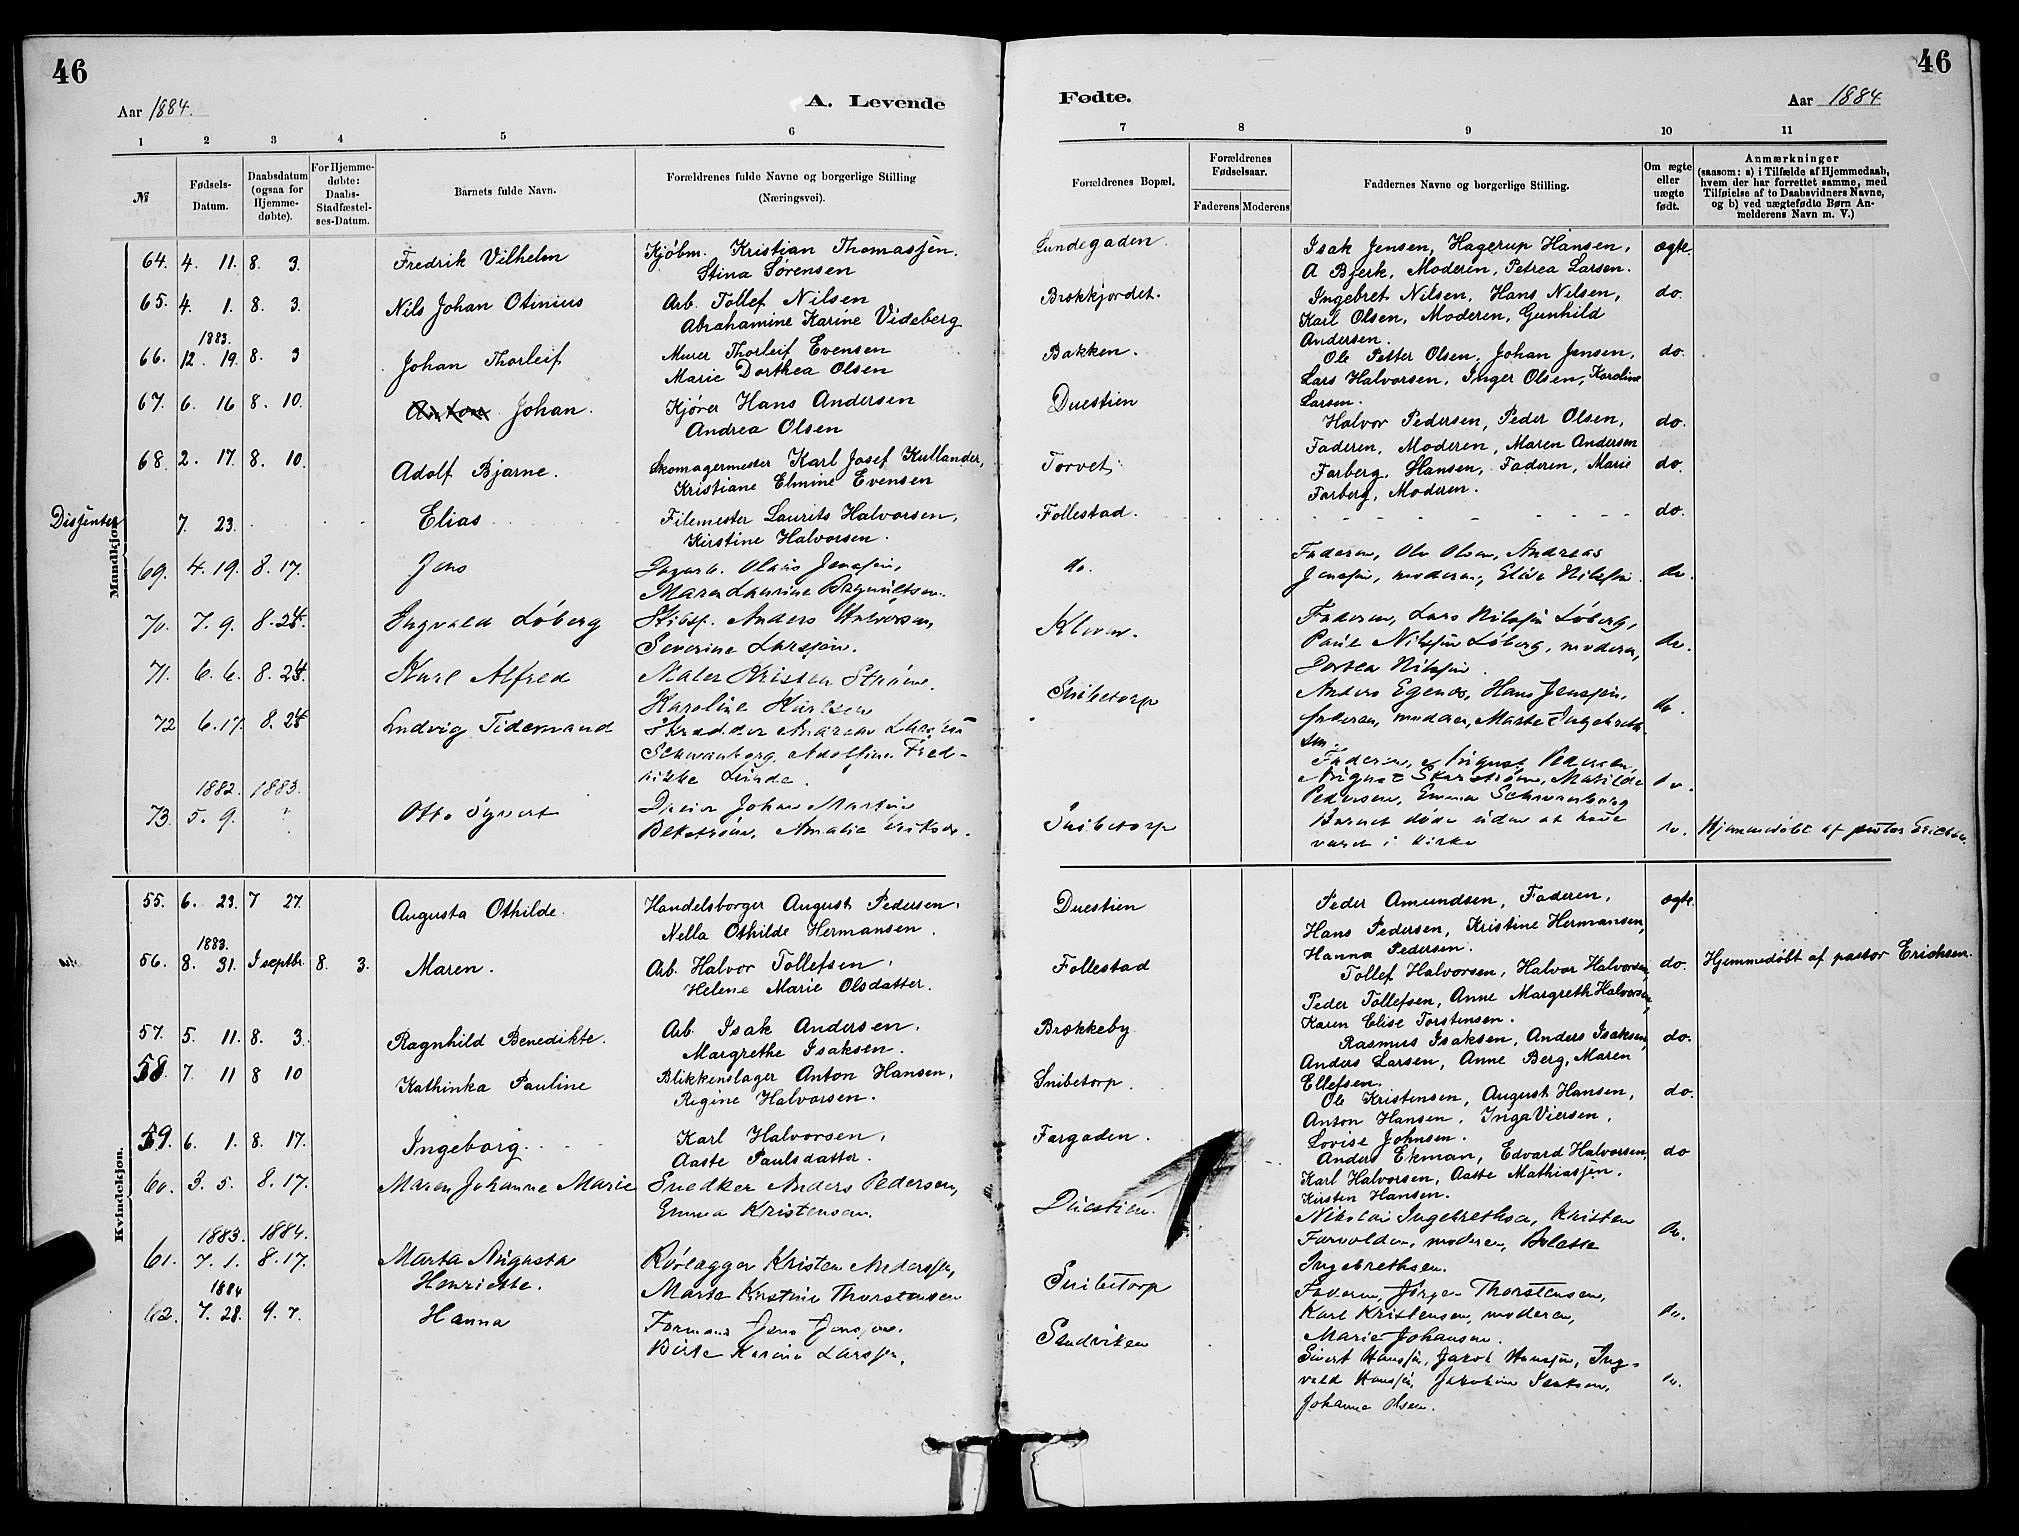 46
46
Aar 1884.
A. Levende
Fødte.
Aar 1884
1 2 3 4 5 6 7 8 9 10 11
№
Fødsels-Datum.
Daabsdatum (ogsaa for Hjemmedøbte).
For Hjemmedøbte: Daabs-Stadfæstelses-Datum.
Barnets fulde Navn.
Forældrenes fulde Navne og borgerlige Stilling (Næringsvei).
Forældrenes Bopæl.
Forældrenes Fødselsaar.
Faderens Moderens
Faddernes Navne og borgerlige Stilling.
Om ægte eller uægte født.
Anmærkninger
(saasom: a) i Tilfælde af Hjemmedaab,
hvem der har forrettet samme, med
Tilføielse af to Daabsvidners Navne,
og b) ved uægtefødte Børn Anmelderens Navn m. V.)
Mandkjøn.
64. 4. 11. 8. 3. Fredrik Vilhelm
Kjøbm. Kristian Thomassen.
Stina Sørensen
Lundegaden.
Isak Jensen, Hagerup Hansen,
A Bjerk, Moderen, Petrea Larsen.
ægte.
65. 4. 1. 8. 3. Nils Johan Otinius
Arb. Tollef Nilsen
Abrahamine Karine Videberg
Brækkjordet.
Ingebret Nilsen, Hans Nilsen,
Karl Olsen, Moderen, Gunhild
Andersen.
do.
1883.
66. 12. 19. 8. 3 Johan Thorleif
Murer Thorleif Evensen
Marie Dorthea Olsen
Bakken.
Ole Petter Olsen, Johan Jensen,
Lars Halvorsen, Inger Olsen, Karoline
Larsen.
do.
67. 6. 16 8. 10. Anton Johan.
Kjører Hans Andersen
Andrea Olsen
Duestien
Halvor Pedersen, Peder Olsen,
Faderen, Moderen, Maren Andersen
do.
68. 2. 17. 8. 10. Adolf Bjarne.
Skomagermester Karl Josef Kullander,
Kristiane Elmine Evensen
Torvet
Farberg, Hansen, Faderen, Marie
Farberg, Moderen.
do.
Dissenter 7. 23. Elias
Filemester Laurits Halvorsen,
Kirstine Halvorsen.
Follestad.
do.
69. 4. 19. 8. 17. Jens
Olaus Jenssen,
Maren Laurine
do.
Faderen, Ole Olsen, Andreas
Jenssen, moderen, Elise Nilssen.
do.
70. 7. 9. 8. 24. Ingvald Løberg
Skibsf. Anders Halvorsen,
Severine Larssen.
Kleven.
Faderen, Lars Nilssen Løberg,
Paul Nilssen Løberg, moderen,
Dorthea Nilssen.
do.
71. 6. 6. 8. 24. Karl Alfred
Maler Kristen Strøm.
Karoline Karlsen
Snibetorp
Anders Egenes, Hans Jenssen,
faderen, moderen, Marte Ingebreth-
sen.
do.
72 6. 17. 8. 24 Ludvig Tidemand
Skrædder Andreas
Schwanberg, Adolfine Fred-
rikke Lunde.
Faderen, August Pedersen,
August Skarstrøm, Matilde
Pedersen, Emma Schwanberg
do.
1882. 1883.
73. 5. 9. Otto Syvert
Dreier Johan Martin
Bekstrøm, Amalie Eriksen.
Snibetorp
Barnet døde uden at have
været i Kirke
do.
Hjemmedøbt af pastor Erichsen.
Kvindekjøn.
55. 6. 23. 7 27. Augusta Othilde.
Handelsborger August Pedersen,
Nella Othilde Hermansen.
Duestien
Peder Amundsen, Faderen,
Hans Pedersen, Kristine Hermansen,
Hanna Pedersen.
ægte.
1883.
56. 8. 31. 1 septbr. 8. 3. Maren.
Arb. Halvor Tollefsen,
Helene Marie Olsdatter.
Follestad
Tollef Halvorsen, Halvor Halvorsen,
Peder Tollefsen, Anne Margreth Halvorsen,
Karen Elise Torstensen.
do.
Hjemmedøbt af pastor Erichsen.
57. 5. 11. 8. 3. Ragnhild Benedikte.
Arb. Isak Andersen.
Margrethe Isaksen.
Brækkeby
Rasmus Isaksen, Anders Isaksen,
Anders Larsen, Anne Berg, Maren
Ellefsen.
do.
58. 7. 11 8 10 Kathinka Pauline
Blikkenslager Anton Hansen,
Regine Halvorsen.
Snibetorp.
Ole Kristensen, August Hansen,
Anton Hansen, Inga Viersen,
Lovise Johnsen.
do.
59. 6. 1. 8. 17. Ingeborg.
Karl Halvorsen,
Aaste Paulsdatter.
Fargaden.
Anders Ekman, Edvard Halvorsen,
Karl Halvorsen, Aaste Mathiassen,
Kirsten Hansen.
do
60. 3. 5. 8. 17. Maren Johanne Marie
Snedker Anders Pedersen,
Emma Kristensen.
Duestien.
Nikolai Ingebrethsen, Kristen
Farvolden, moderen, Bolette
Ingebrethsen.
do.
1883. 1884.
61. 7. 1. 8. 17. Marta Augusta
Henriette.
Kristen Anderssen,
Marte Kirstine Thorstensen
Snibetorp
Faderen, Jørgen Thorstensen,
Karl Kristensen, moderen,
Marie Johansen.
do.
1884
62. 7. 28. 9. 7. Hanna
Formand Jens Jenssen.
Birte Karine Larssen.
Sandviken
Sivert Hanssen, Jakob Hanssen, Ing-
vald Hanssen, Jakobine Isaksen,
Johanne Olsen.
do.